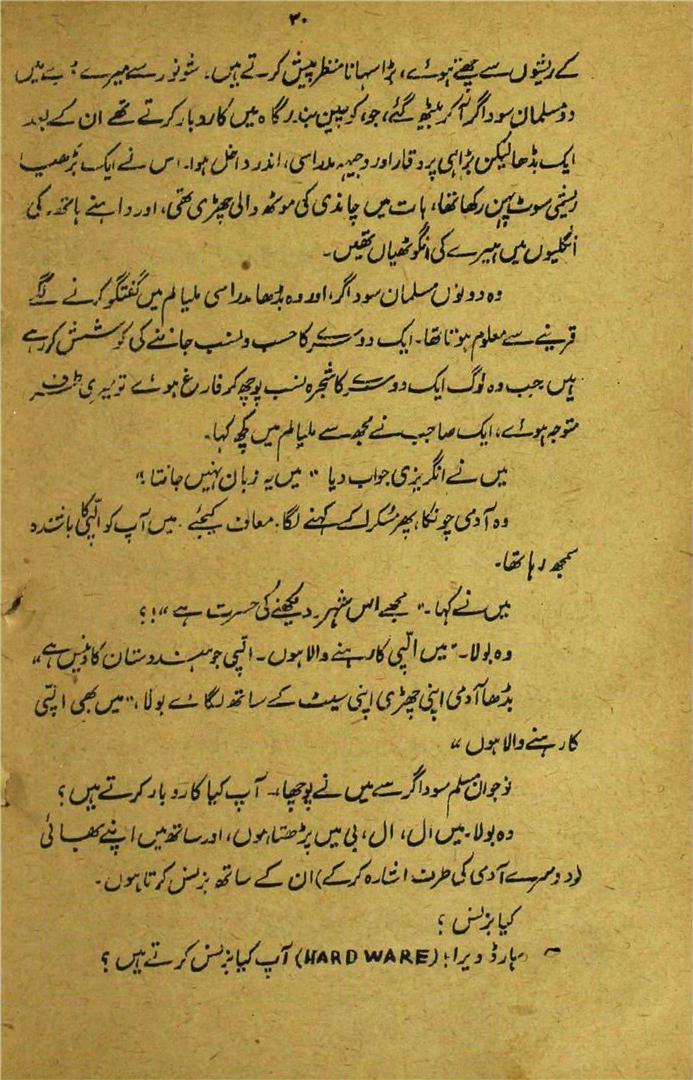 ۳۰
کے ریشوں سے چھتے ہوئے، بڑا سہانا منظر پیش کرتے ہیں۔ شونور سے میرے ڈبے میں
دو مسلمان سوداگر آ کر بیٹھ گئے، جو، کوچین بندرگاہ میں کاروبار کرتے تھے ان کے بعد
ایک بڈھا لیکن بڑا ہی پروقار اور وجیہہ مدراسی، اندر داخل ہوا۔ اس نے ایک بڑھیا
ریشمی سوٹ پہن رکھا تھا، ہات میں چاندی کی موٹھ والی چھڑی تھی، اور داہنے ہاتھ کی
انگلیوں میں ہیرے کی انگوٹھیاں تھیں۔
وہ دونوں مسلمان سوداگر، اور وہ بڈھا مدراسی ملیالم میں گفتگو کرنے لگے
قرینے سے معلوم ہوتا تھا۔ ایک دوسرے کا حسب و نسب جاننے کی کوشش کر رہے
ہیں جب وہ لوگ ایک دوسرے کا شجرہ نسب پوچھ کر فارغ ہوئے تو میری طرف
متوجہ ہوئے، ایک صاحب نے مجھ سے ملیالم میں کچھ کہا۔
میں نے انگریزی جواب دیا " میں یہ زبان نہیں جانتا ؟"
وہ آدمی چونکا، پھر مسکرا کے کہنے لگا۔ معاف کیجئے۔ میں آپ کو الپّی کا باشندہ
سمجھ رہا تھا۔
میں نے کہا۔" مجھے اس شہر۔ دیکھنے کی حسرت ہے "!؟
وہ بولا۔" میں الپّی کا رہنے والا ہوں۔ الپی جو ہندوستان کا وینس ہے"
بڈھا آدمی اپنی چھڑی اپنی سیٹ کے ساتھ لگائے بولا،" میں بھی الپّی
کا رہنے والا ہوں "
نوجوان مسلم سوداگر سے میں نے پوچھا۔ آپ کیا کاروبار کرتے ہیں؟
وہ بولا۔ میں ال، ال، بی میں پڑھتا ہوں، اور ساتھ میں اپنے بھائی
(دوسرے آدمی کی طرف اشارہ کر کے) ان کے ساتھ بزنس کرتا ہوں۔
کیا بزنس ؟
ہارڈ ویر! (HARD WARE) آپ کیا بزنس کرتے ہیں ؟